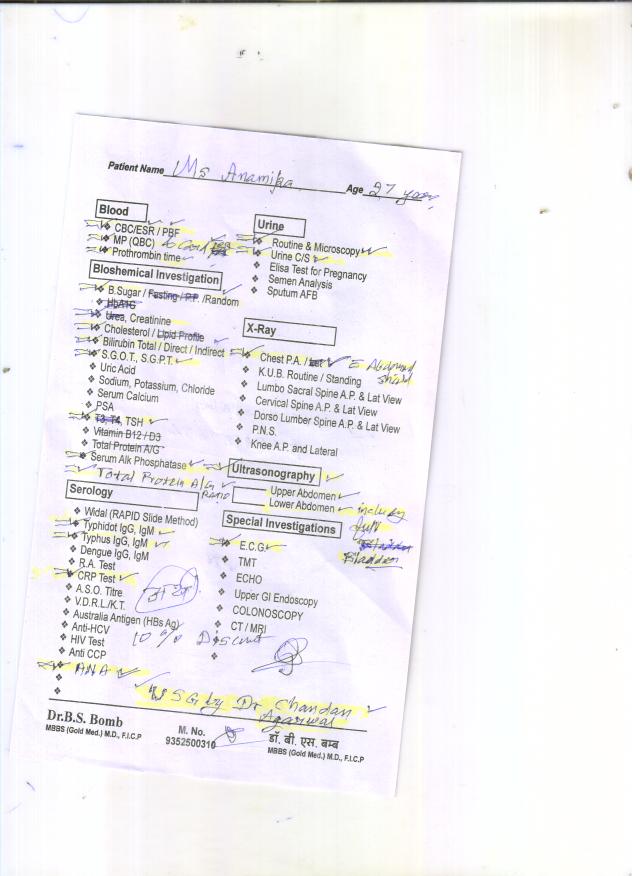 Patient Name Ms Anamika Age 27 years
Blood
CBC/ESR / PBF
MP (QBC) & Card
Prothrombin time
Bioshemical Investigation
B.Sugar / Fasting / P.P. /Random
HbA1C
Urea, Creatinine
Cholesterol / Lipid Profile
Bilirubin Total / Direct / Indirect
S.G.O.T., S.G.P.T.
Uric Acid
Sodium, Potassium, Chloride
Serum Calcium
PSA
T3, T4, TSH
Vitamin B12 / D3
Total Protein A/G
Serum Alk Phosphatase
Total Protein A/G RATIO
Serology
Widal (RAPID Slide Method)
Typhidot IgG, IgM
Typhus IgG, IgM
Dengue IgG, IgM
R.A. Test
CRP Test
A.S.O. Titre
V.D.R.L./K.T.
Australia Antigen (HBs Ag)
Anti-HCV
HIV Test
Anti CCP
ANA
Urine
Routine & Microscopy
Urine C/S
Elisa Test for Pregnancy
Semen Analysis
Sputum AFB
X-Ray
Chest P.A. / Lat E Abdomen
shield
K.U.B. Routine / Standing
Lumbo Sacral Spine A.P. & Lat View
Cervical Spine A.P. & Lat View
Dorso Lumber Spine A.P. & Lat View
P.N.S.
Knee A.P. and Lateral
Ultrasonography
Upper Abdomen
Lower Abdomen includy
full
Bladder
Special Investigations
E.C.G.
TMT
ECHO
Upper GI Endoscopy
COLONOSCOPY
CT / MRI
10% Discunt
USG by Dr Chandan
Agarwal
Dr.B.S. Bomb
MBBS (Gold Med.) M.D., F.I.C.P
M. No.
9352500310
डॉ. बी. एस. बम्ब
MBBS (Gold Med.) M.D., F.I.C.P